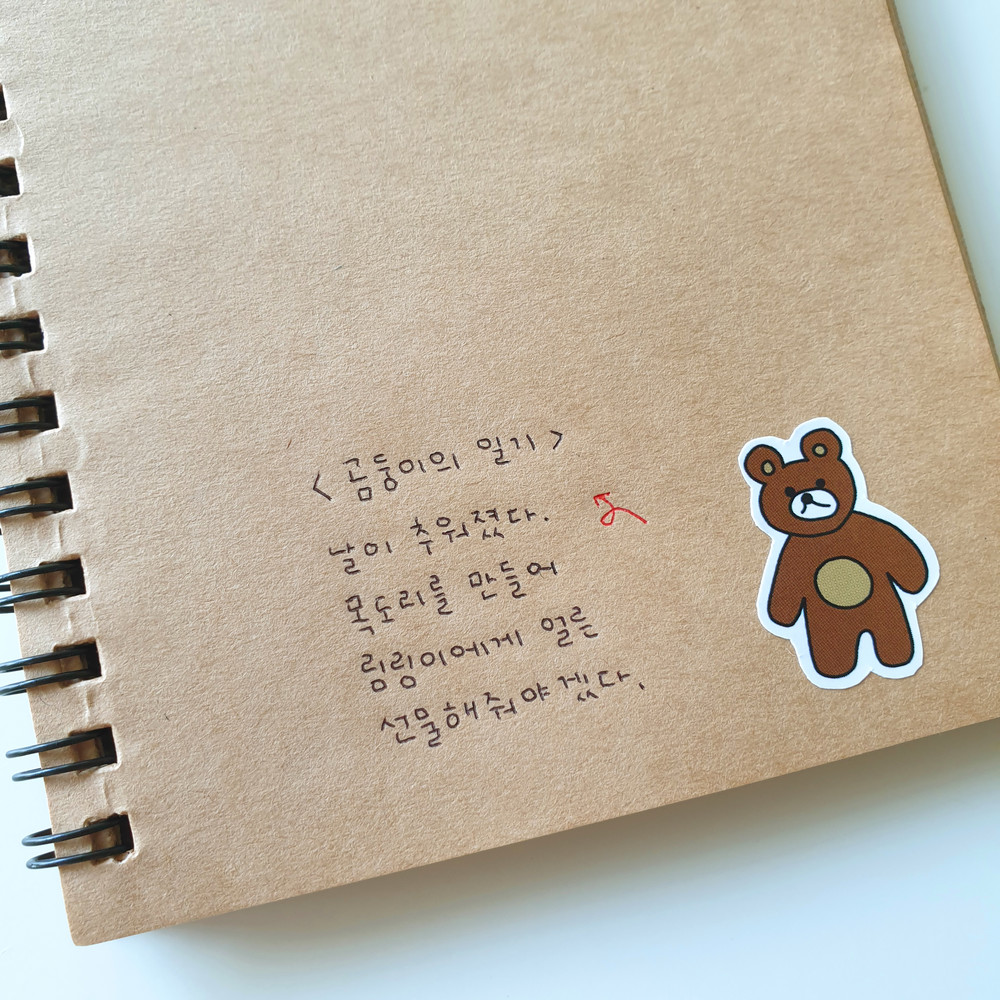 <곰둥이의 일기>
날이 추워졌다.
목도리를 만들어
림링이에게 얼른
선물해줘야겠다.